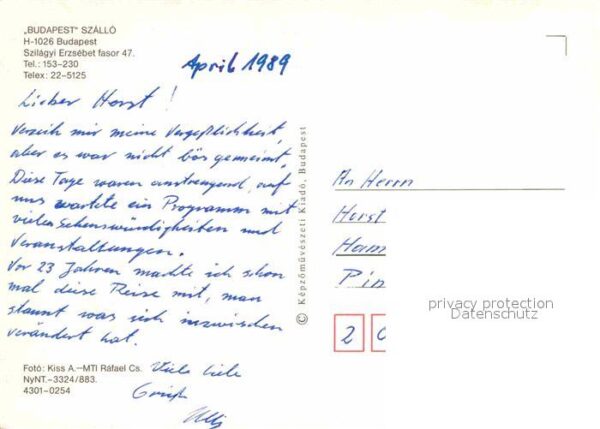 „BUDAPEST" SZÁLLÓ
H-1026 Budapest
Szilágyi Erzsébet fasor 47.
Tel.: 153-230
Telex: 22-5125
April 1989
Lieber Horst!
Verzeih mir meine Vergeßlichkeit,
aber es war nicht bös gemeint.
Diese Tage waren anstrengend, auf
uns wartete ein Programm mit
vielen Sehenswürdigkeiten und
Veranstaltungen.
Vor 23 Jahren machte ich schon
mal diese Reise mit, man
staunt was sich inzwischen
verändert hat.
Viele liebe
Grüße
Fotó: Kiss A.—MTI Ráfael Cs.
NyNT.—3324/883.
4301-0254
© Képzőművészeti Kiadó, Budapest
An Herrn
Horst
Ham
Pin
2
privacy protection
Datenschutz